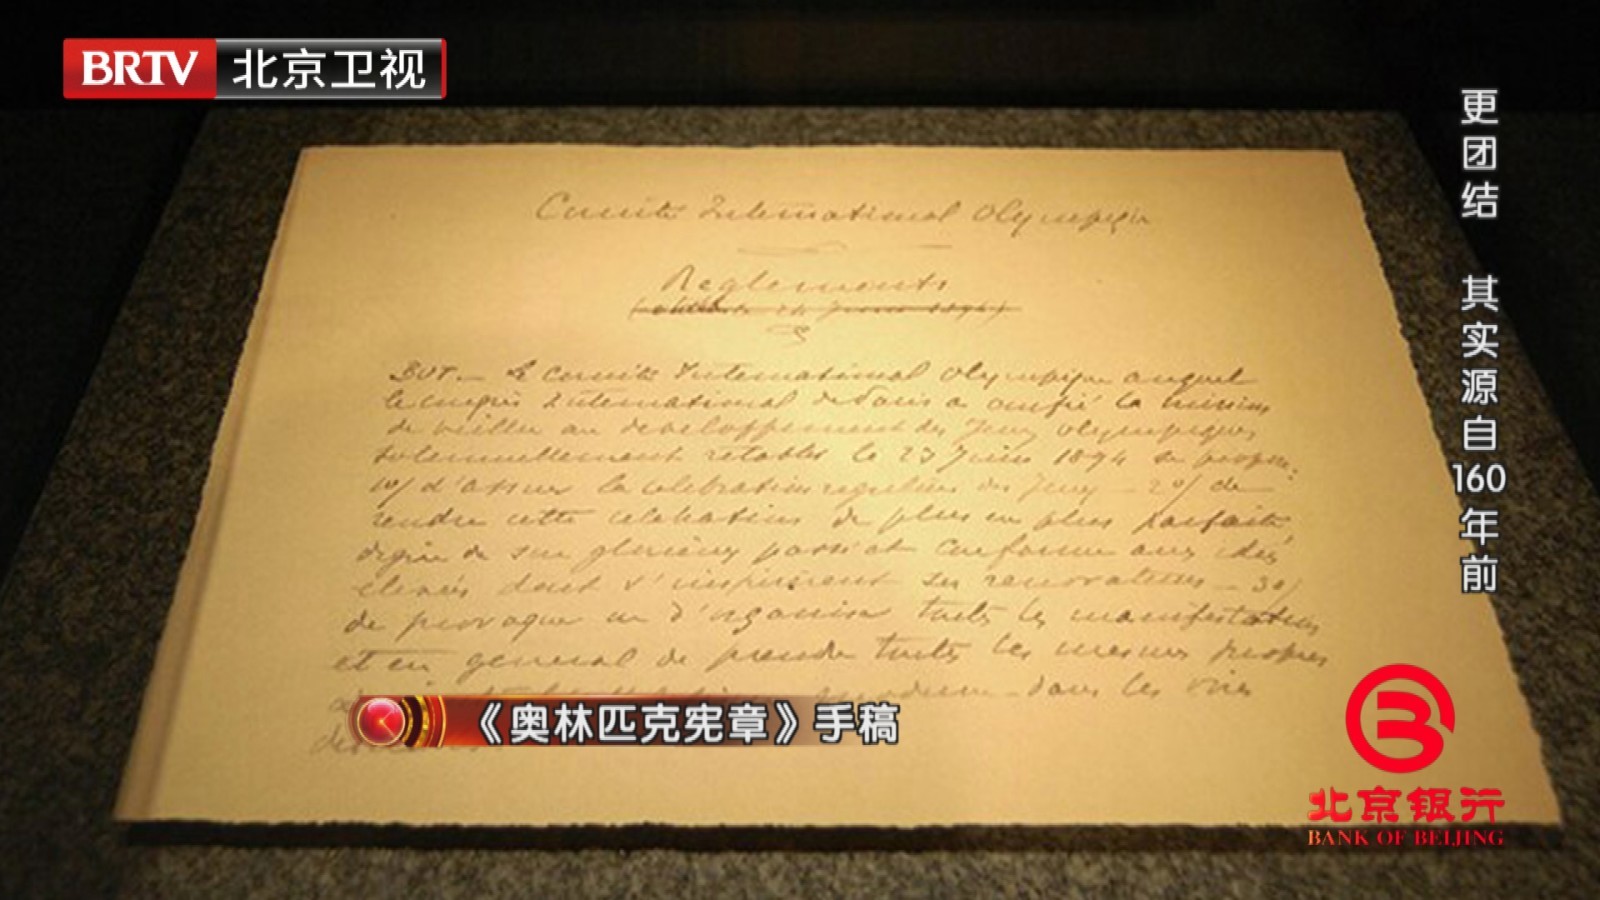 BRTV 北京卫视
更团结 其实源自160年前
Comité International Olympique
Reglements
BUT. - Le Comité International Olympique auquel
le Congrès International de Paris a confié la mission
de veiller au developpement des Jeux Olympiques
solennellement retablis le 23 Juin 1894 se propose:
1o/ d'assurer la celebration reguliere des Jeux - 2o/ de
rendre cette celebration de plus en plus parfaite
digne de son glorieux passé et conforme aux idées
elevées dont s'inspirèrent ses renovateurs - 3o/
de provoquer ou d'organiser toutes les manifestations
et en general de prendre toutes les mesures propres
moderne - dans les voies
《奥林匹克宪章》手稿
北京银行
BANK OF BEIJING